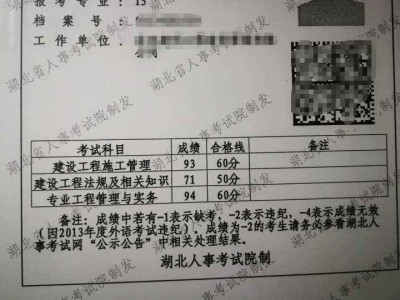 报考专业：15
档案号：
工作单位：
考试科目 成绩 合格线 备注
建设工程施工管理 93 60分
建设工程法规及相关知识 71 50分
专业工程管理与实务 94 60分
备注：成绩中若有-1表示缺考，-2表示违纪，-4表示成绩无效
（因2013年度外语考试违纪）；成绩为-2的考生请务必参看湖北人
事考试网“公示公告”中相关处理结果。
湖北人事考试院制
湖北省人事考试院制发